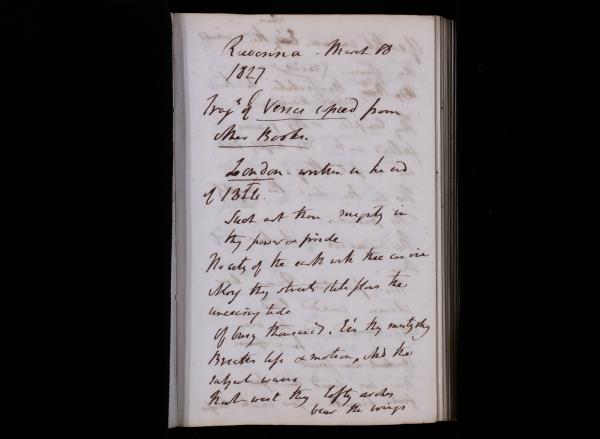 Ravenna - March 18
1827.
Frag.s of Verses copied from
other Books.
London - written in the end
of 1811.
Such art thou, mighty in
thy power & pride
No city of the earth with thee can vie
Along thy streets still flows the
unceasing tide
Of busy thousands. E'en thy misty sky
Breathes life & motion, and the
subject waves
that wash thy lofty arches
bear the wings